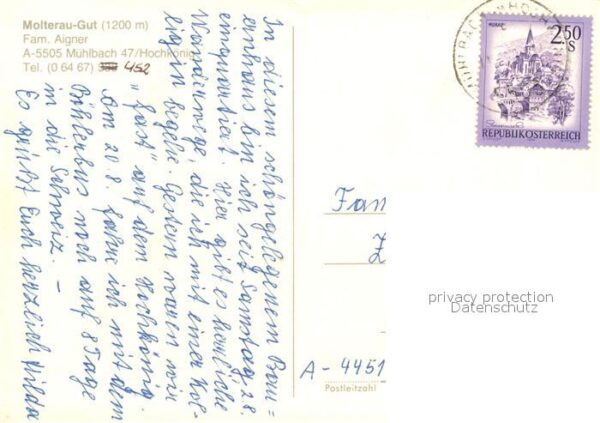 Molterau-Gut (1200 m)
Fam. Aigner
A-5505 Mühlbach 47/Hochkönig
Tel. (0 64 67) 452
In diesem schöngelegenem Bau=
ernhaus bin ich seit Samstag, 2.8.
einquartiert. Hier gibt es herrliche
Wanderwege, die ich mit einer Kol=
legin begehe. Gestern waren wir
"fast" auf dem Hochkönig.
Am 20.8. fahre ich mit dem
Bühlerbus noch auf 8 Tage
in die Schweiz. –
Es grüßt Euch herzlich Hilda
MURAU
2.50
S
REPUBLIK ÖSTERREICH
Fam
Z
A-4451
Postleitzahl
privacy protection
Datenschutz